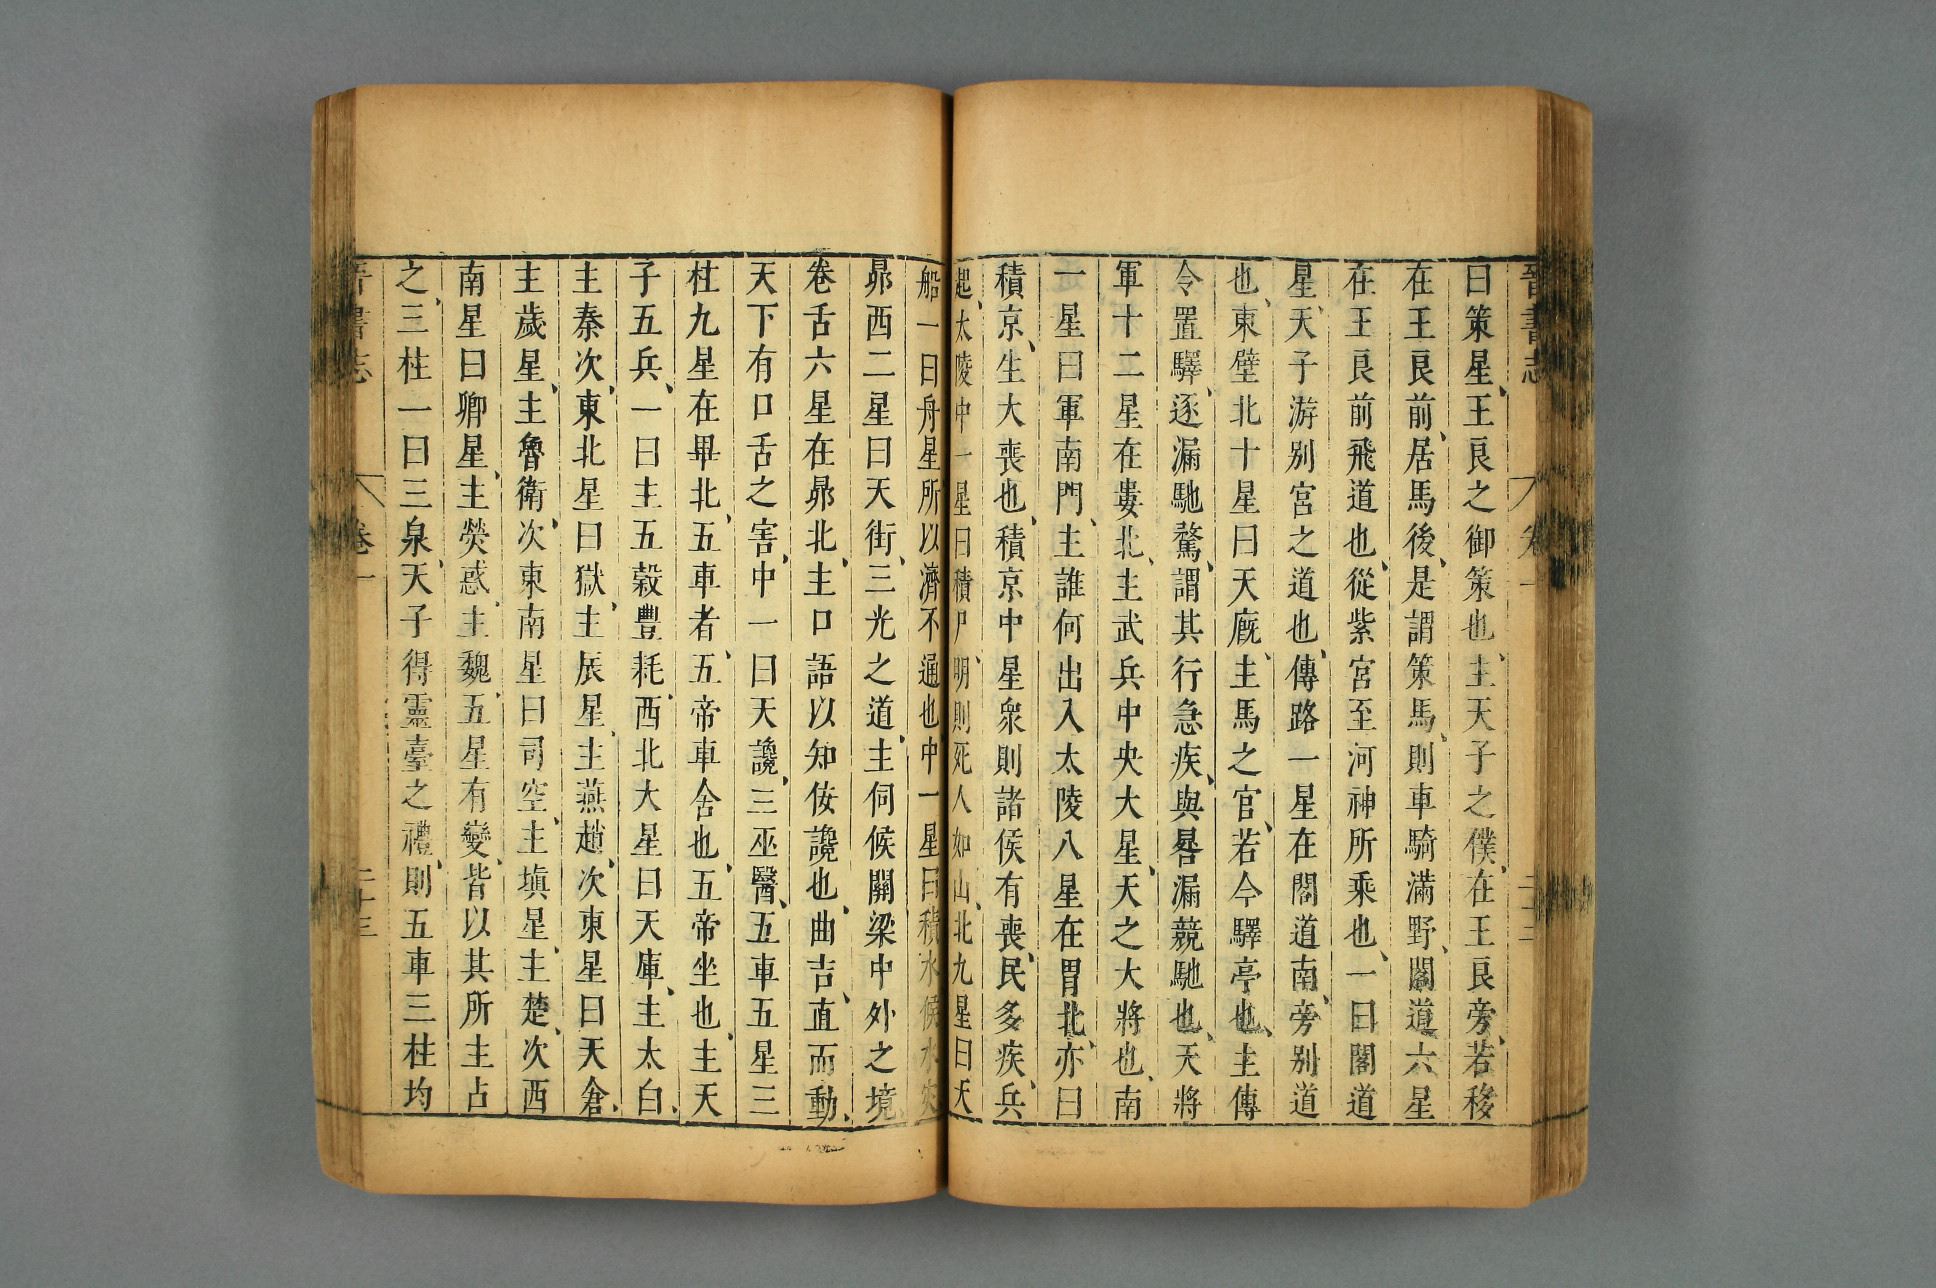 晉書志 卷一 二十二
曰策星、王良之御策也、主天子之僕、在王良旁、若移
在王良前、居馬後、是謂策馬、則車騎滿野、閣道六星
在王良前飛道也、從紫宮至河神所乘也、一曰閣道
星、天子游別宮之道也、傳路一星在閣道南、旁別道
也、東壁北十星曰天廐、主馬之官、若今驛亭也、主傳
令置驛、逐漏馳騖、謂其行急疾、與晷漏競馳也、天將
軍十二星在婁北、主武兵中央大星、天之大將也、南
一星曰軍南門、主誰何出入太陵八星在胃北、亦曰
積京、生大喪也、積京中星衆則諸侯有喪、民多疾、兵
起、太陵中一星曰積尸、明則死人如山、北九星曰天
船一曰舟星所以濟不通也、中一星曰積水候水災
昴西二星曰天街、三光之道、主伺候關梁中外之境
卷舌六星在昴北、主口語以知佞讒也、曲吉、直而動、
天下有口舌之害、中一曰天讒、三巫醫、五車五星三
柱九星在畢北、五車者、五帝車舍也、五帝坐也、主天
子五兵、一曰主五穀豐耗、西北大星曰天庫、主太白、
主秦次、東北星曰獄、主辰星、主燕趙、次東星曰天倉、
主歲星、主魯衛、次東南星曰司空、主塡星、主楚、次西
南星曰卿星、主熒惑、主魏、五星有變、皆以其所主占
之、三柱一曰三泉、天子得靈臺之禮、則五車三柱均
晉書志 卷一 二十三